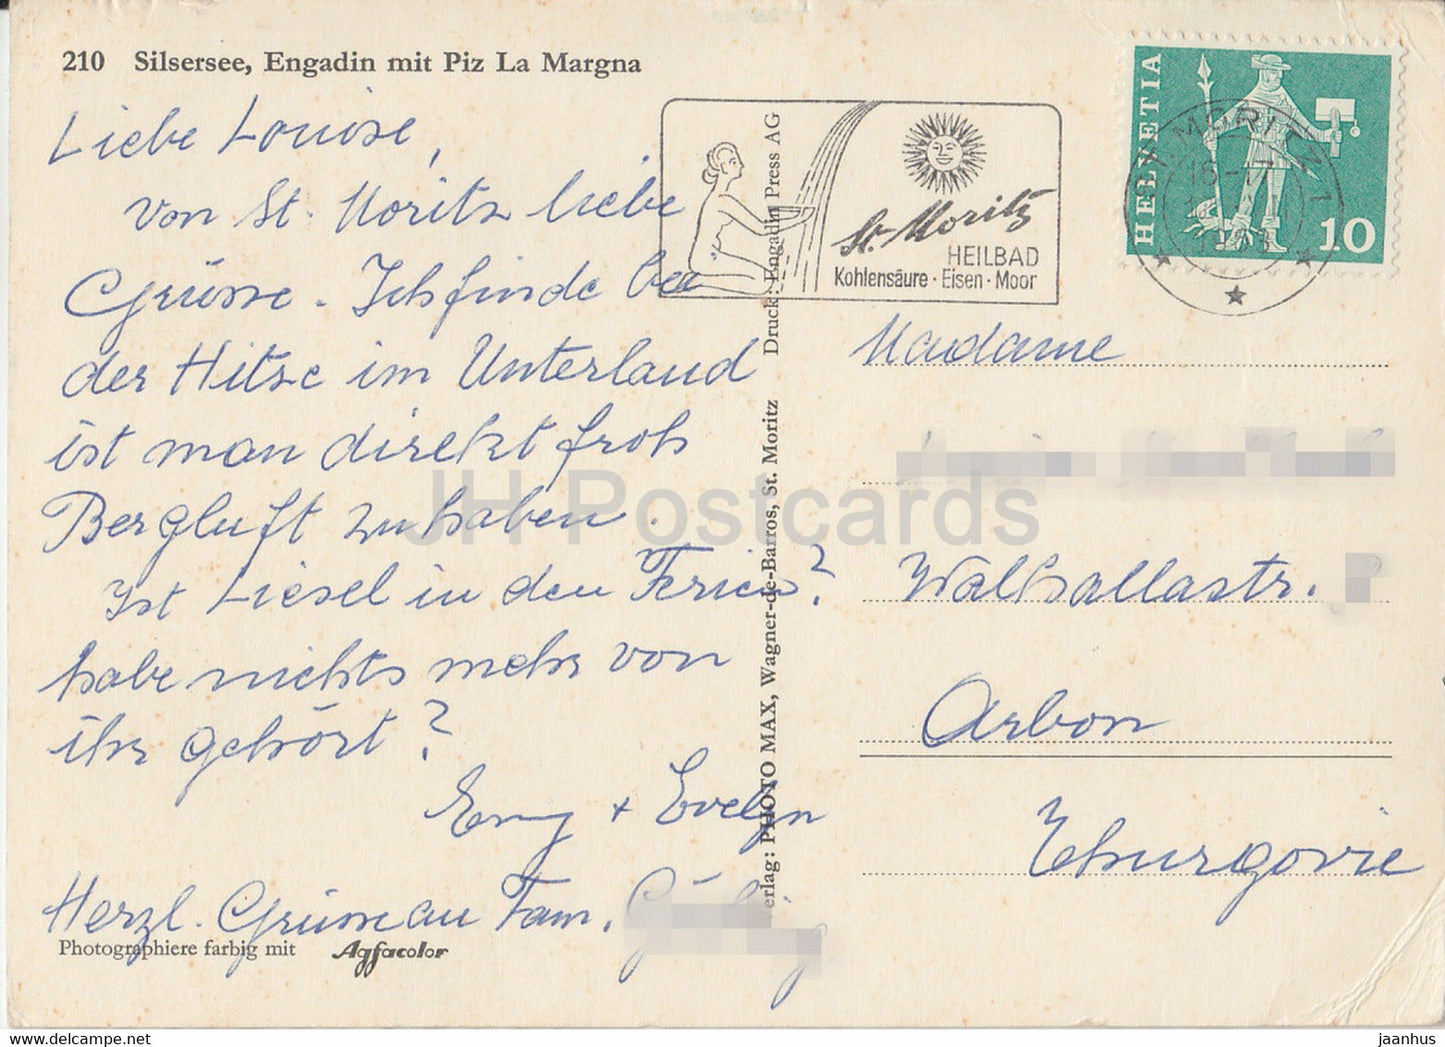 210 Silsersee, Engadin mit Piz La Margna
Liebe Louise,
von St. Moritz liebe
Grüsse. Ich finde bei
der Hitze im Unterland
ist man direkt froh
Bergluft zu haben.
Ist Liesel in den Ferien?
habe nichts mehr von
ihr gehört?
Emy + Evelyn
Herzl. Grüsse an Fam.
Photographiere farbig mit Agfacolor
Verlag: PHOTO MAX, Wagner-de-Barros, St. Moritz Druck: Engadin Press AG
St. Moritz
HEILBAD
Kohlensäure · Eisen · Moor
HELVETIA
10
ST. MORITZ 1
16-17
Madame
Walhallastr.
Arbon
Thurgovie
JH Postcards
jaanhus